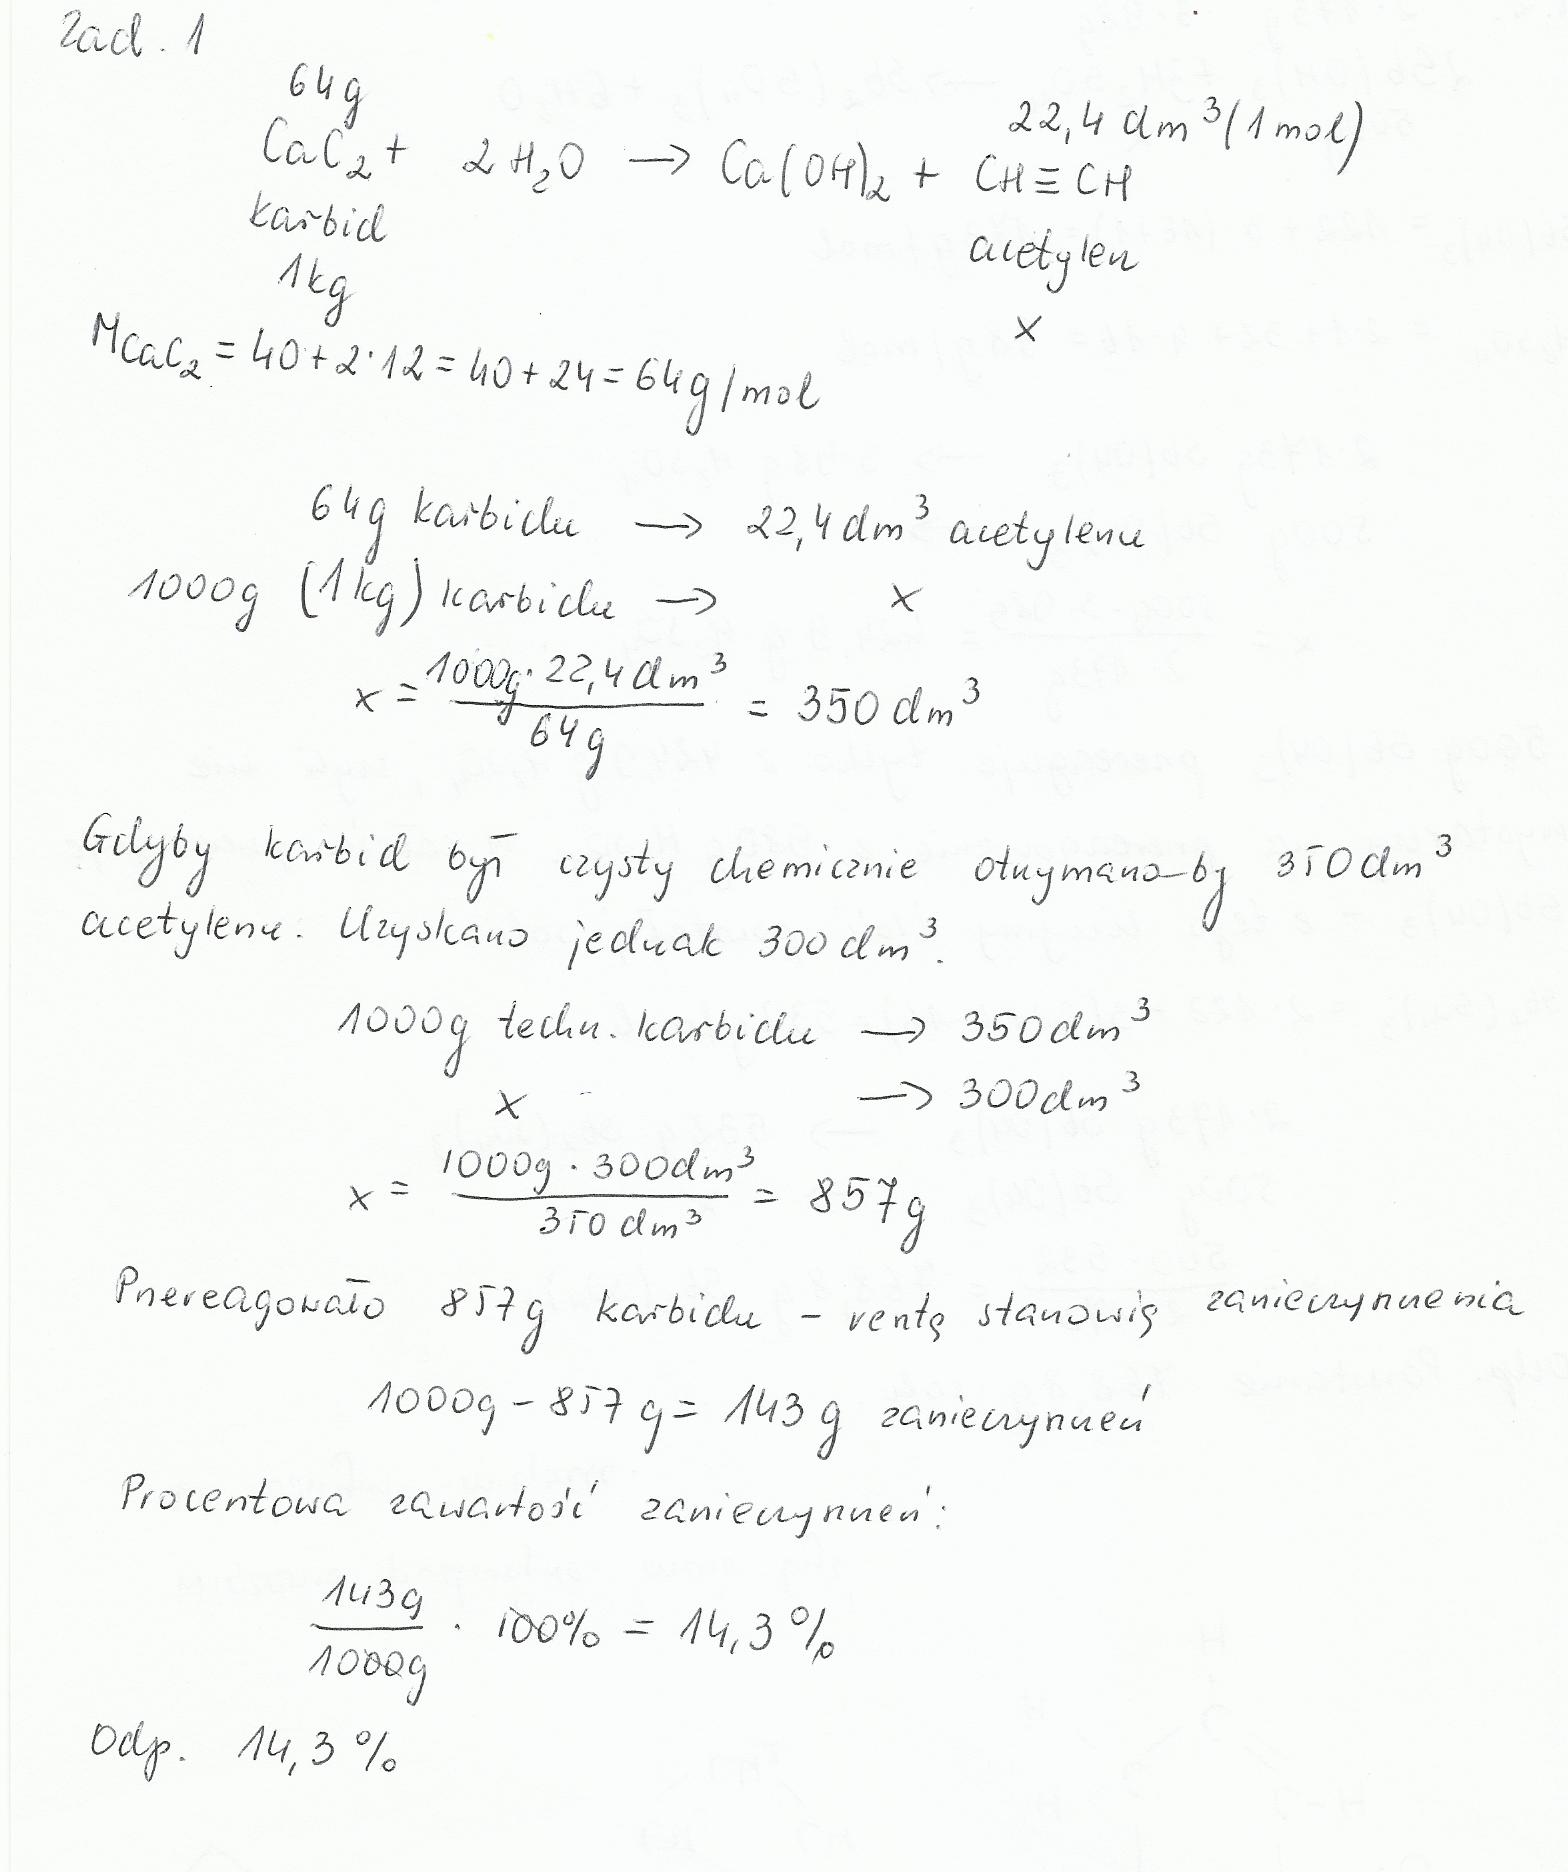 Zad. 1
64g
22,4 dm³ (1 mol)
CaC₂ + 2H₂O → Ca(OH)₂ + CH≡CH
karbid
acetylen
1kg
x
M CaC₂ = 40 + 2·12 = 40 + 24 = 64g/mol
64g karbidu → 22,4 dm³ acetylenu
1000g (1kg) karbidu → x
x = 1000g · 22,4 dm³ / 64g = 350 dm³
Gdyby karbid był czysty chemicznie otrzymano-by 350 dm³
acetylenu. Uzyskano jednak 300 dm³.
1000g techn. karbidu → 350 dm³
x → 300 dm³
x = 1000g · 300 dm³ / 350 dm³ = 857g
Przereagowało 857g karbidu – resztę stanowią zanieczyszczenia
1000g – 857g = 143g zanieczyszczeń
Procentowa zawartość zanieczyszczeń:
143g / 1000g · 100% = 14,3%
Odp. 14,3%